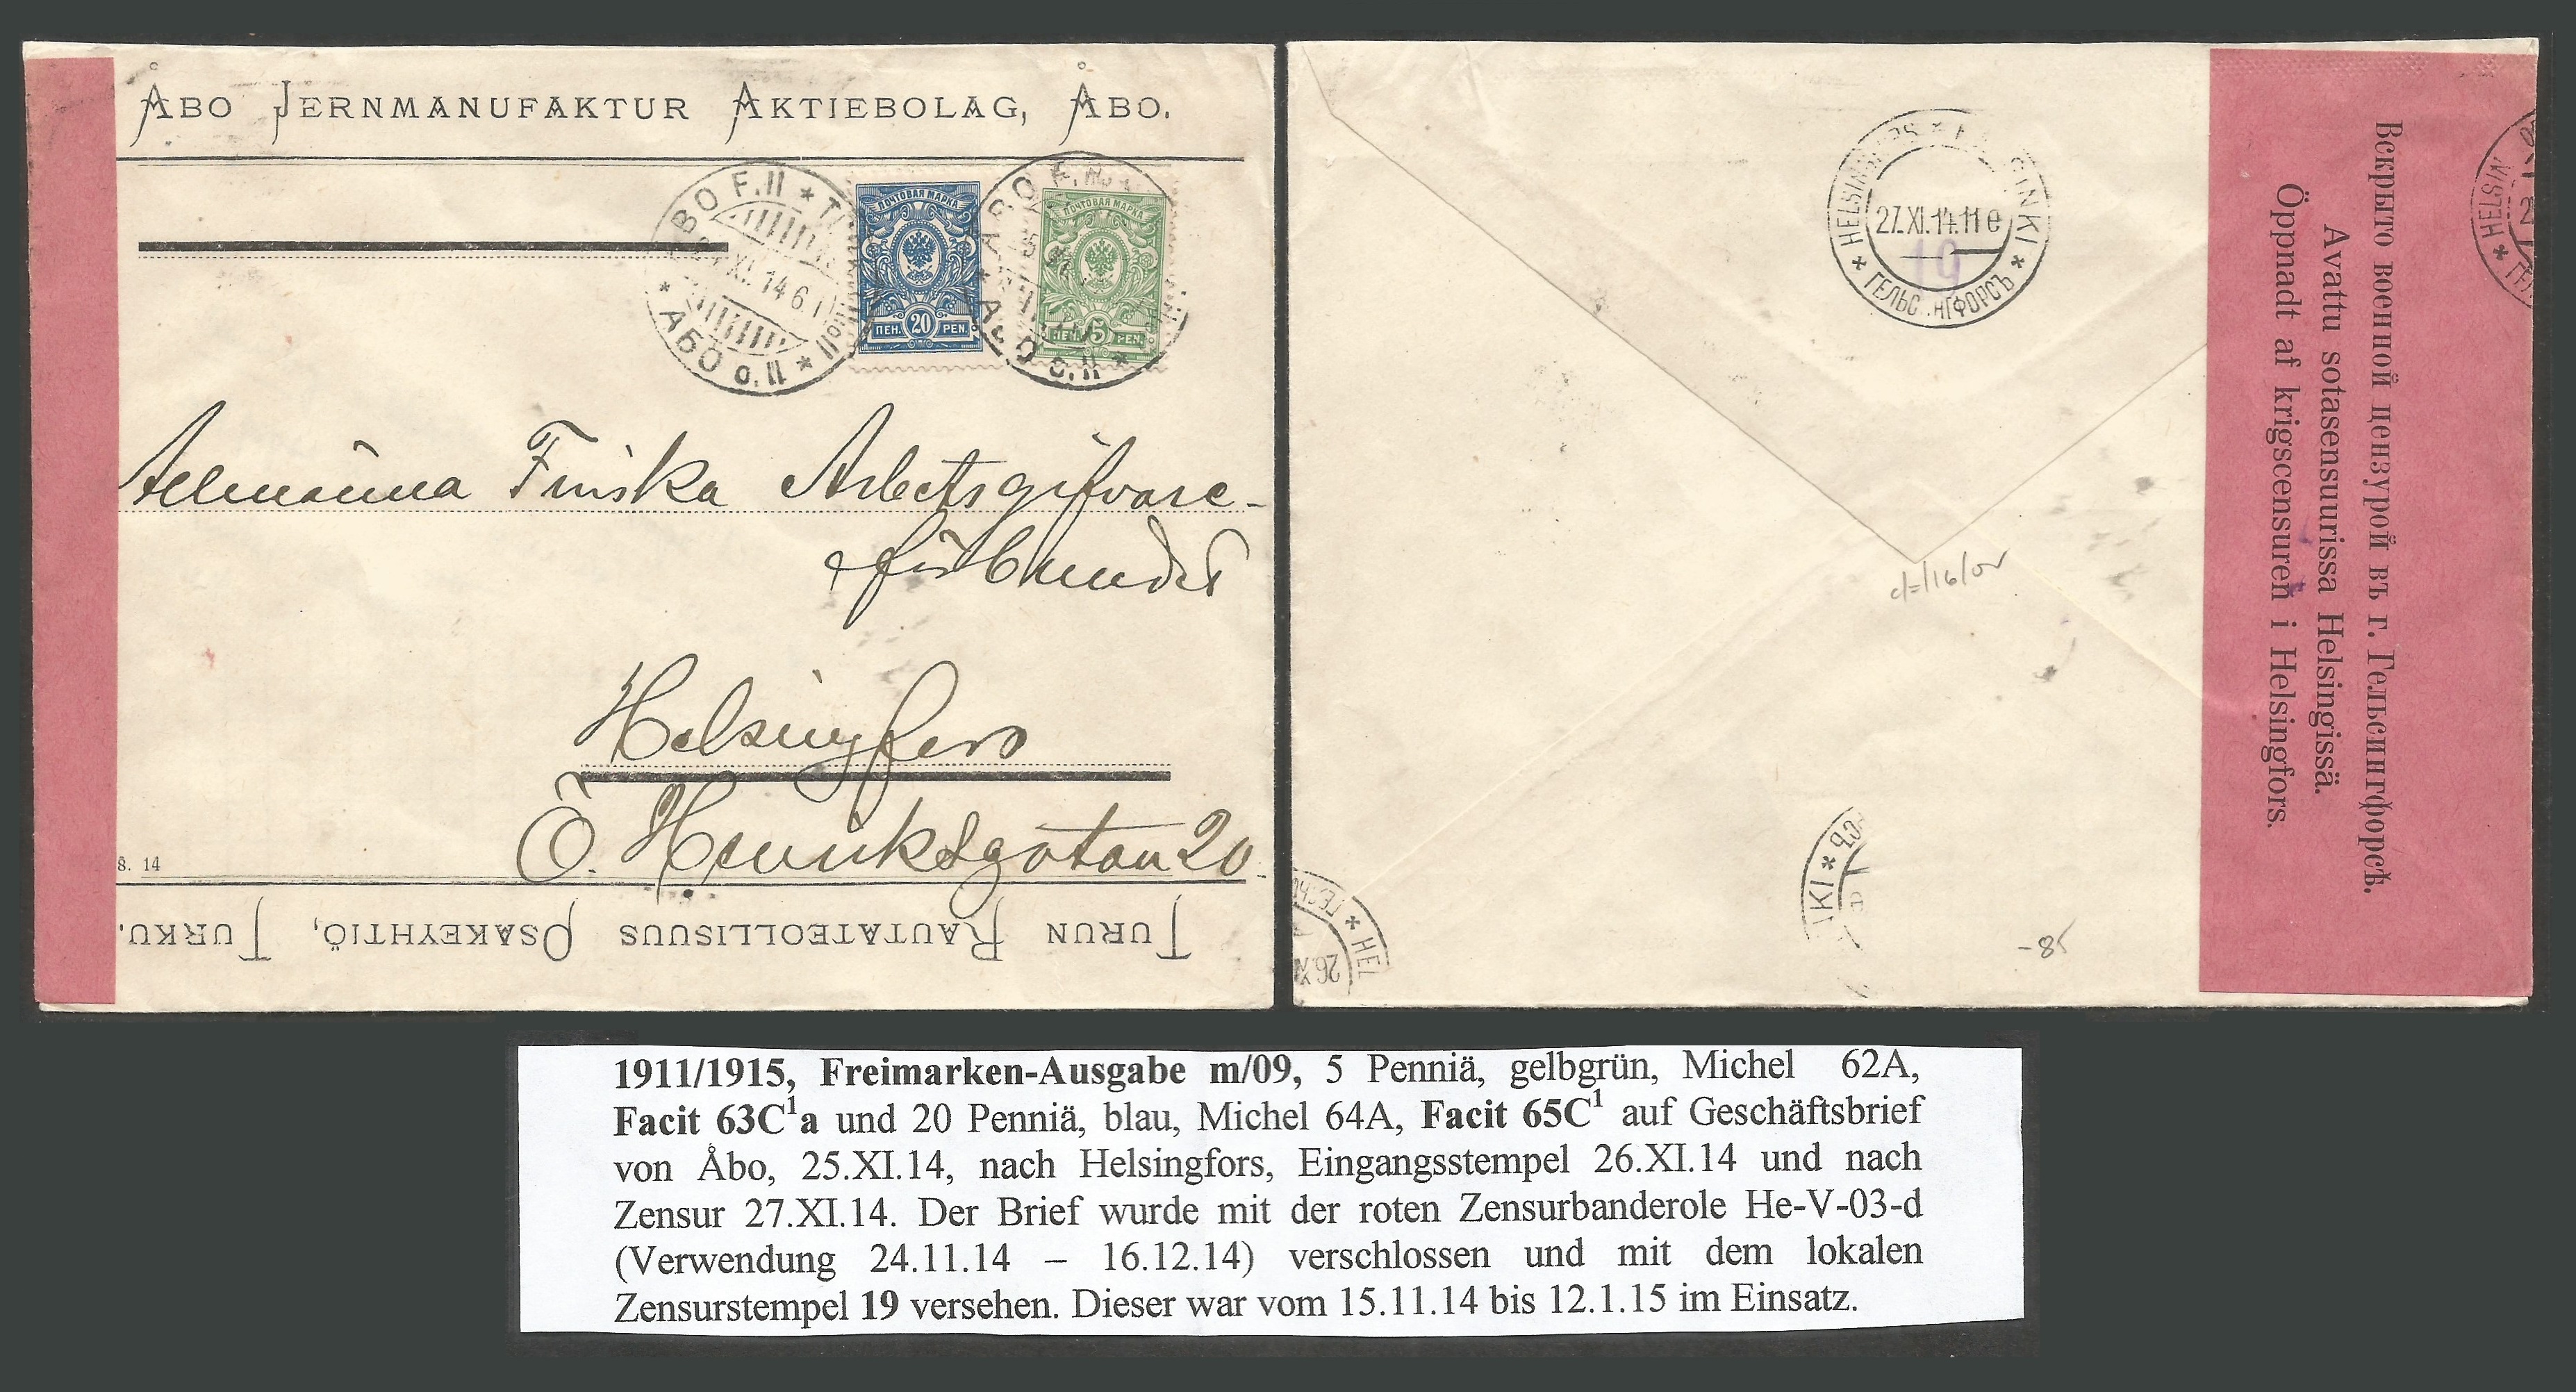 ÅBO JERNMANUFAKTUR AKTIEBOLAG, ÅBO.
ÅBO F.II * T
XI. 14 6
* АБО о. II *
ПОЧТОВАЯ МАРКА
ПЕН. 20 PEN.
ÅBO F.
ПОЧТОВАЯ МАРКА
ПЕН. 5 PEN.
Allmänna Finska Arbetsgifvare-
förbundet
Helsingfors
Ö. Henriksgatan 20
8. 14
TURUN RAUTATEOLLISUUS OSAKEYHTIÖ, TURKU.
HELSINGFORS * HELSINKI *
27.XI.14.11
19
* ГЕЛЬСИНГФОРСЪ *
Вскрыто военной цензурой въ г. Гельсингфорсѣ.
Avattu sotasensuurissa Helsingissä.
Öppnadt af krigscensuren i Helsingfors.
* HELSIN
* HEL
26.XI
KI *
-85
1911/1915, Freimarken-Ausgabe m/09, 5 Penniä, gelbgrün, Michel 62A,
Facit 63C¹a und 20 Penniä, blau, Michel 64A, Facit 65C¹ auf Geschäftsbrief
von Åbo, 25.XI.14, nach Helsingfors, Eingangsstempel 26.XI.14 und nach
Zensur 27.XI.14. Der Brief wurde mit der roten Zensurbanderole He-V-03-d
(Verwendung 24.11.14 – 16.12.14) verschlossen und mit dem lokalen
Zensurstempel 19 versehen. Dieser war vom 15.11.14 bis 12.1.15 im Einsatz.